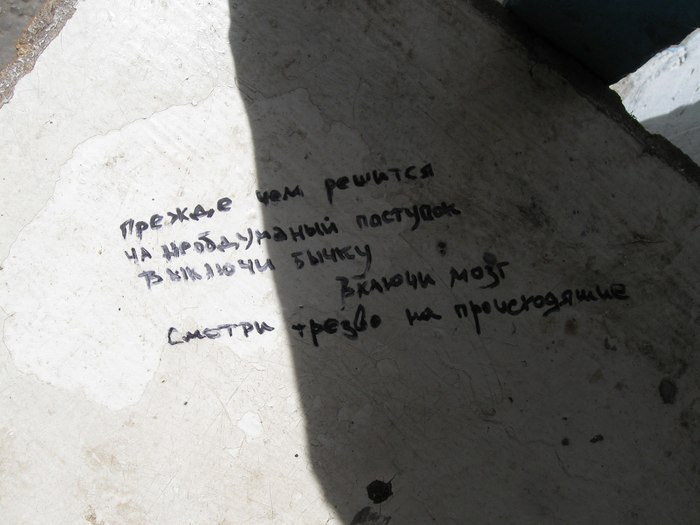 прежде чем решится
на необдуманый поступок
выключи бычку
включи мозг
смотри трезво на происходяшие